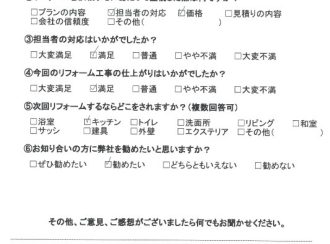 □プランの内容 ☑担当者の対応 ☑価格 □見積りの内容
□会社の信頼度 □その他( )
③担当者の対応はいかがでしたか?
□大変満足 ☑満足 □普通 □やや不満 □大変不満
④今回のリフォーム工事の仕上がりはいかがでしたか?
□大変満足 ☑満足 □普通 □やや不満 □大変不満
⑤次回リフォームするならどこをされますか?(複数回答可)
□浴室 ☑キッチン □トイレ □洗面所 □リビング □和室
□サッシ □建具 □外壁 □エクステリア □その他(
⑥お知り合いの方に弊社を勧めたいと思いますか?
□ぜひ勧めたい ☑勧めたい □どちらともいえない □勧めない
その他、ご意見、ご感想がございましたら何でもお聞かせください。